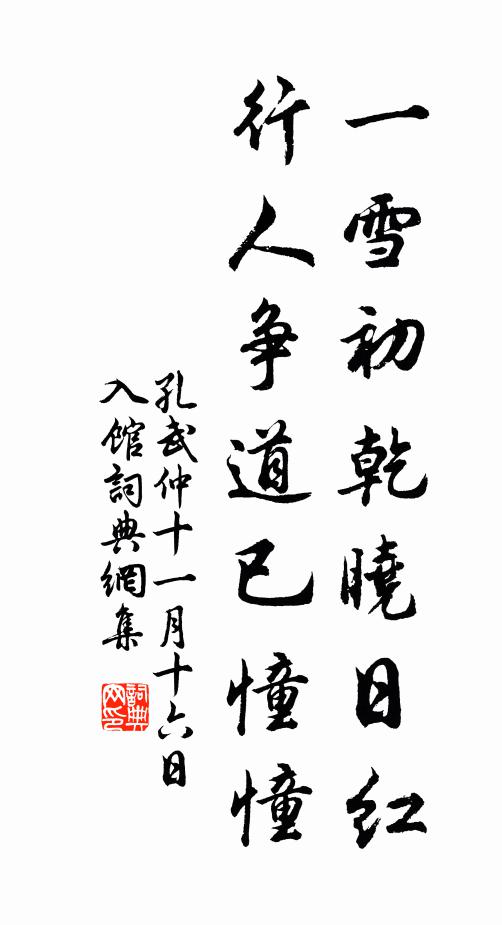 一雪初乾曉日红
行人争道已憧憧
孔武仲十一月十六日
入館詞典網集
詞典网印